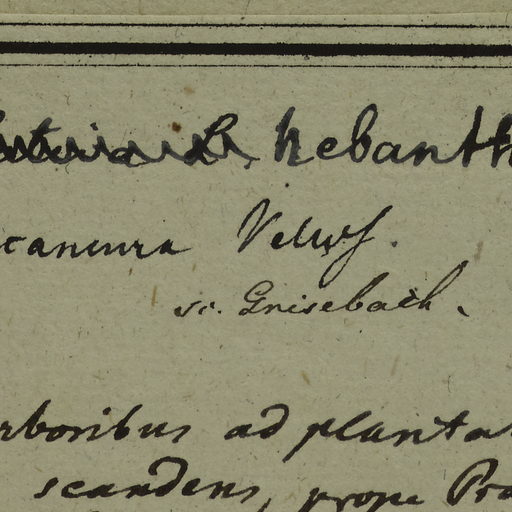 hebanth
Velwsf.
sc. Grisebach.
rboribus ad planta
scandens, prope Pra